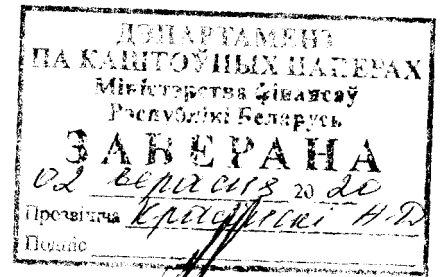 ДЭПАРТАМЕНТ
ПА КАШТОЎНЫХ ПАПЕРАХ
Міністэрства фінансаў
Рэспублікі Беларусь
ЗАВЕРАНА
02 верасня 20 20
Прозвішча
Подпіс